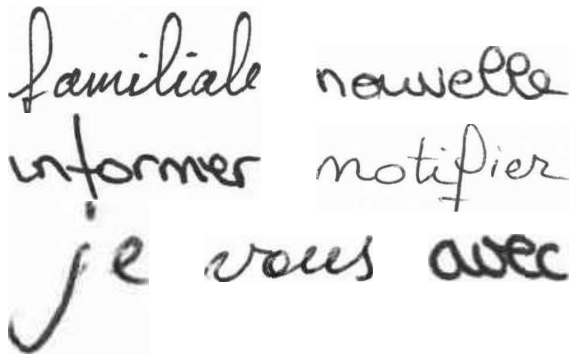 familiale nouvelle
informer notifier
je vous avec